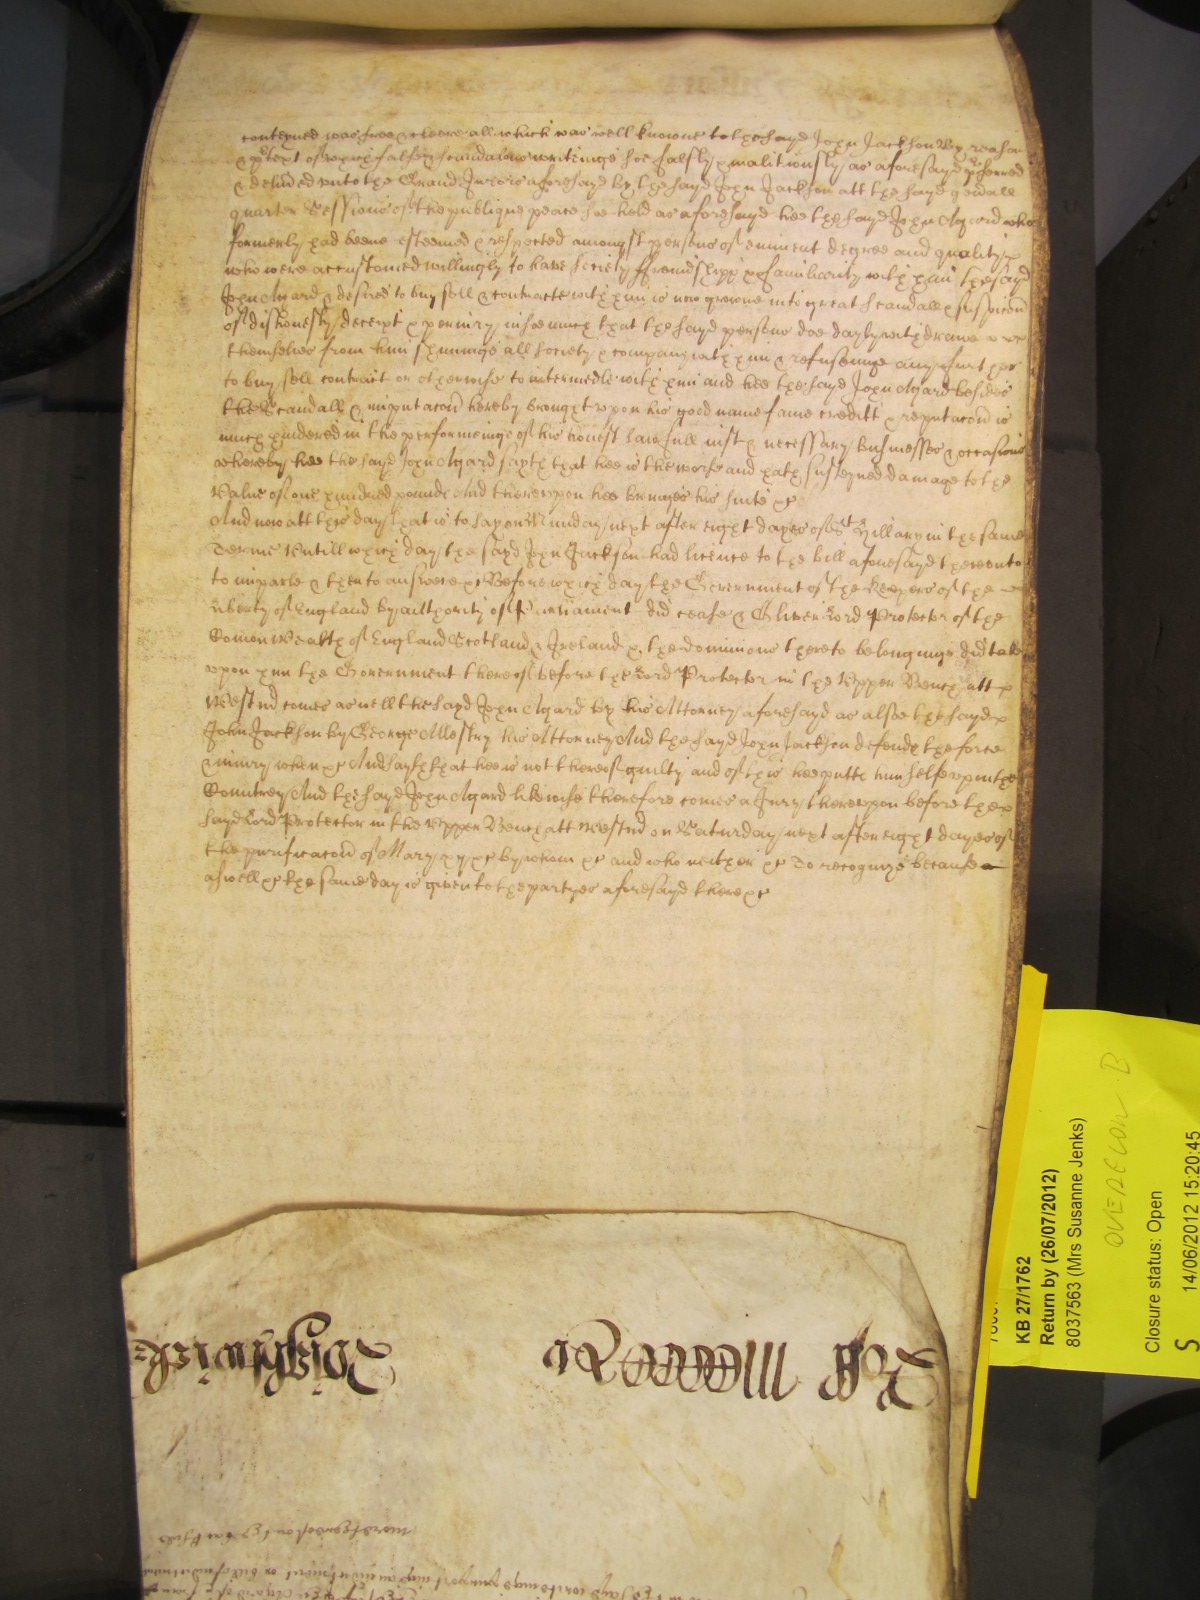 conteyned was free & cleere all which was well knowne to the sayd John Jackson By reason
& p'text of which false & scandalous writings soe falsly & malitiously as aforesayd p'ferred
& delivered unto the Grand Jurors aforesayd by the sayd John Jackson att the sayd gen'all
quarter Sessions of the publique peace soe held as aforesayd hee the sayd John Agard who
formerly had beene esteemed & respected amongst persons of eminent degree and quality &
who were accustomed willingly to have society ffreindshipp & familiarity with him the sayd
John Agard & desired to buy sell & contracte with him is now growne into great scandall & suspicon
of dishonesty deceipt & periury insoemuch that the sayd persons doe dayly withdrawe
themselves from him shunninge all society & company with him & refuseinge any further
to buy sell contract or otherwise to intermedle with him and hee the sayd John Agard besides
the Scandall & imputacon hereby brought upon his good name fame creditt & reputacon is
much hindered in the performeinge of his honest lawfull iust & necessary businesses & occasions
whereby hee the sayd John Agard sayth that hee is the worse and hath susteyned damage to the
value of one hundred pounds And thereupon hee bringes his suite &c
And now att this day that is to say on Munday next after eight dayes of St Hillary in the same
Terme Untill which day the sayd John Jackson had licence to the bill aforesayd thereunto
to imparle & then to answere &c Before which day the Government of the Keepers of the
liberty of England by authority of Parliament did cease & Oliver Lord Protector of the
Comon Wealth of England Scotland & Ireland & the dominions thereto belonginge did take
upon him the Government thereof before the Lord Protector in the Upper Bench att
Westm' comes as well the sayd John Agard by his Attorney aforesayd as alsoe the sayd
John Jackson by George Allestry his Attorney And the sayd John Jackson defends the force
& iniury when &c And sayth that hee is not thereof guilty and of this hee putts himselfe upon the
Countrey And the sayd John Agard likewise therefore comes a Jury thereupon before the
sayd Lord Protector in the Upper Bench att Westm' on Saturday next after eight dayes of
the purificacon of Mary &c by whom &c and who neither &c To recognize because
aswell &c the same day is given to the partyes aforesayd there &c
KB 27/1762
Return by (26/07/2012)
8037563 (Mrs Susanne Jenks)
Closure status: Open
14/06/2012 15:20:45
S